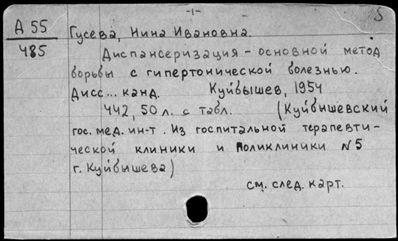 -1-
А 55
485
Гусева, Нина Ивановна.
Диспансеризация - основной метод
борьбы с гипертонической болезнью.
Дисс... канд. Куйбышев, 1954
442, 50 л. с табл. (Куйбышевский
гос. мед. ин-т. Из госпитальной терапевти-
ческой клиники и поликлиники №5
г. Куйбышева)
см. след. карт.